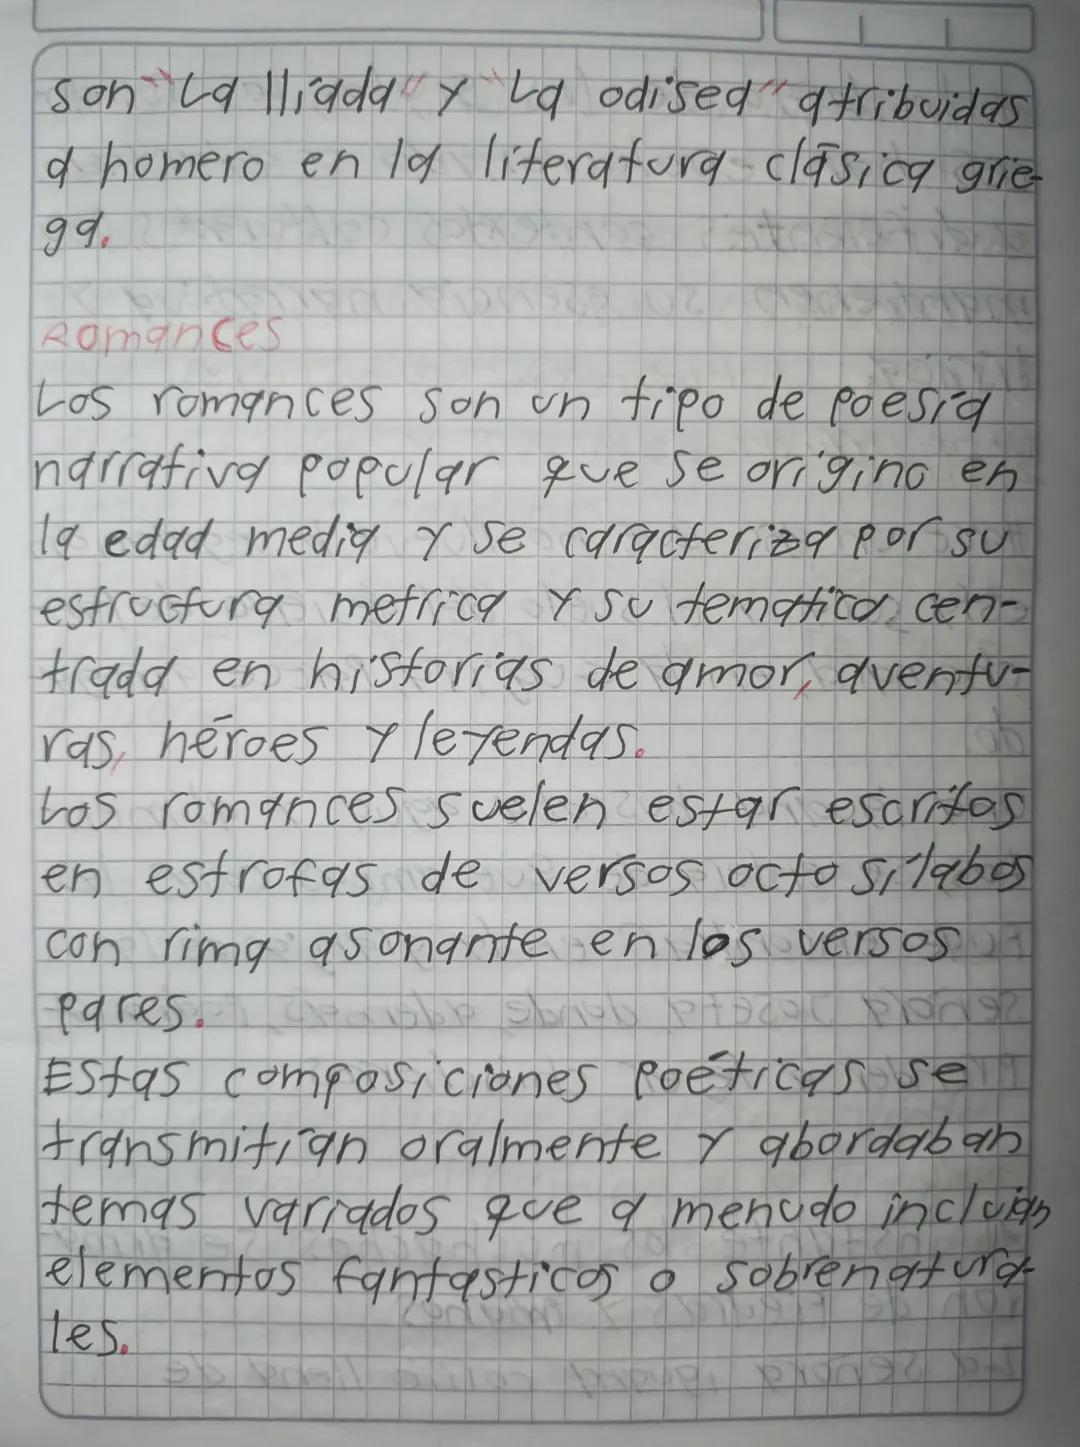 son "La Iliada" y "La odisea" atribuidas
a homero en la literatura clásica grie-
ga.
Romances
Los romances son un tipo de poesia
narrativa popular que se origino en
la edad media y se caracteriza por su
estructura metrica y su tematica cen-
trada en historias de amor, aventu-
ras, héroes y leyendas.
Los romances suelen estar escritos
en estrofas de versos octo silabos
con rima asonante en los versos
pares.
Estas composiciones poéticas se
transmitian oralmente y abordaban
temas variados que a menudo incluian
elementos fantasticos o sobrenatura-
les.